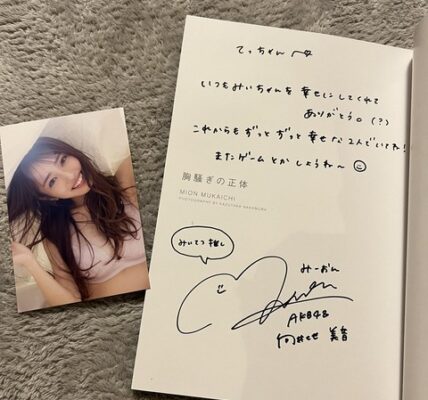 てっちゃんへ
いつもみいちゃんを幸せにしてくれて
ありがとう。(?)
これからもずっとずっと幸せな2人でいてね!
またゲームとかしようね〜
胸騒ぎの正体
MION MUKAICHI
PHOTOGRAPHY BY KAZUTAKA NAKAMURA
みいてつ推し
みーおん
AKB48
向井地 美音